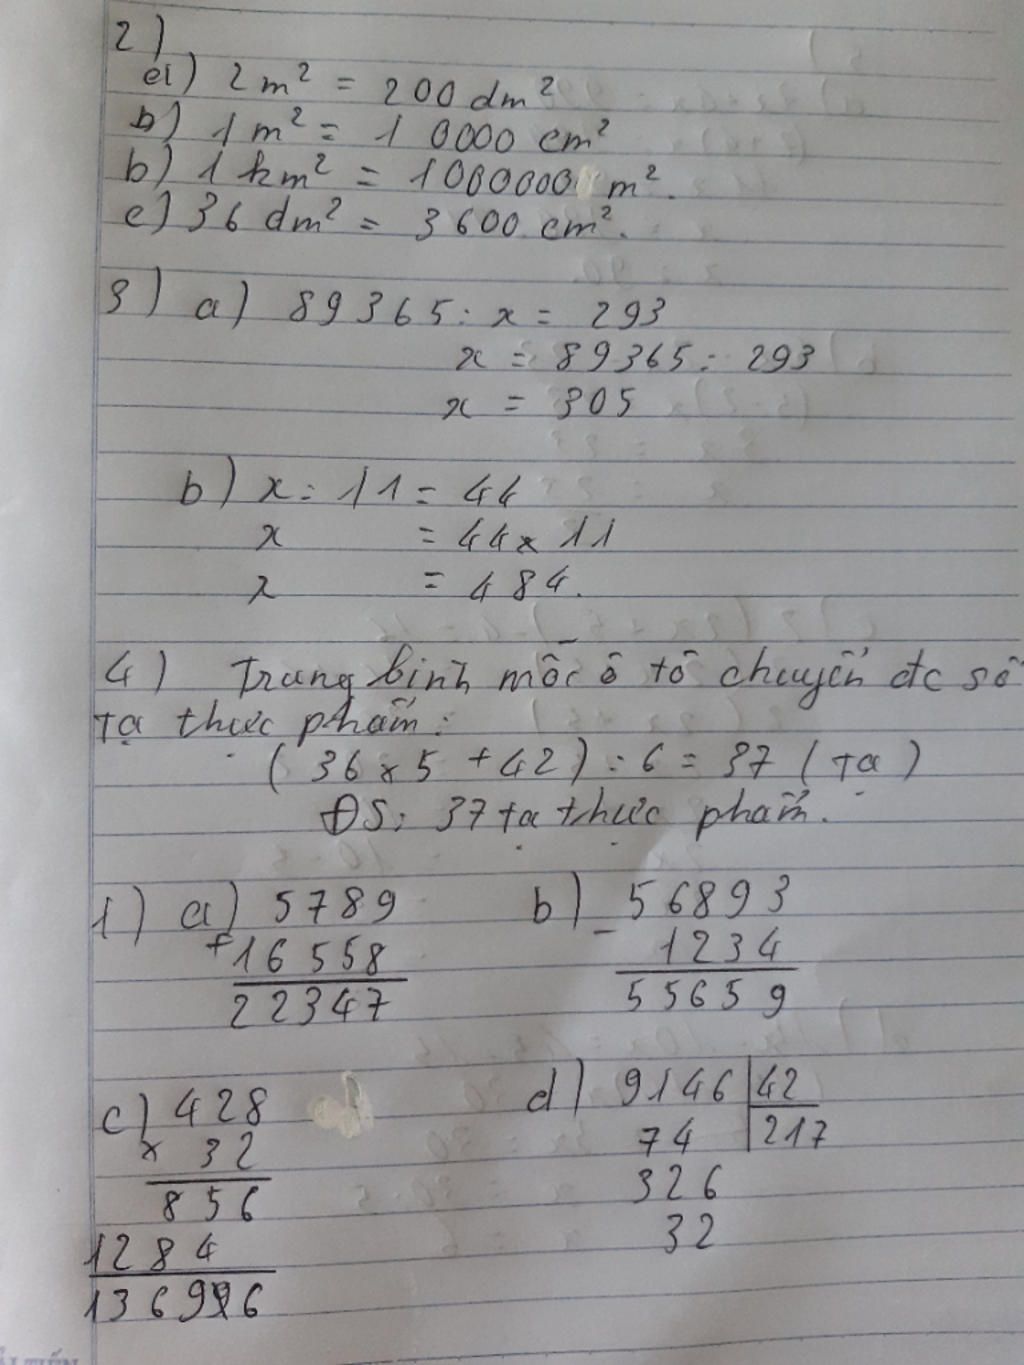 2)
a) 2m² = 200 dm²
b) 1m² = 1 0000 cm²
b) 1 km² = 1000000 m².
c) 36 dm² = 3600 cm².
3) a) 89365 : x = 293
x = 89365 : 293
x = 305
b) x : 11 = 44
x = 44 x 11
x = 484.
4) Trung bình mỗi ô tô chuyển đc số
tạ thực phẩm:
( 36 x 5 + 42 ) : 6 = 37 ( tạ )
ĐS: 37 tạ thực phẩm.
1) a) 5789 b) 56893
+ 16558 - 1234
22347 55659
c) 428 d) 9146 | 42
x 32 74 | 217
856 326
1284 32
13696